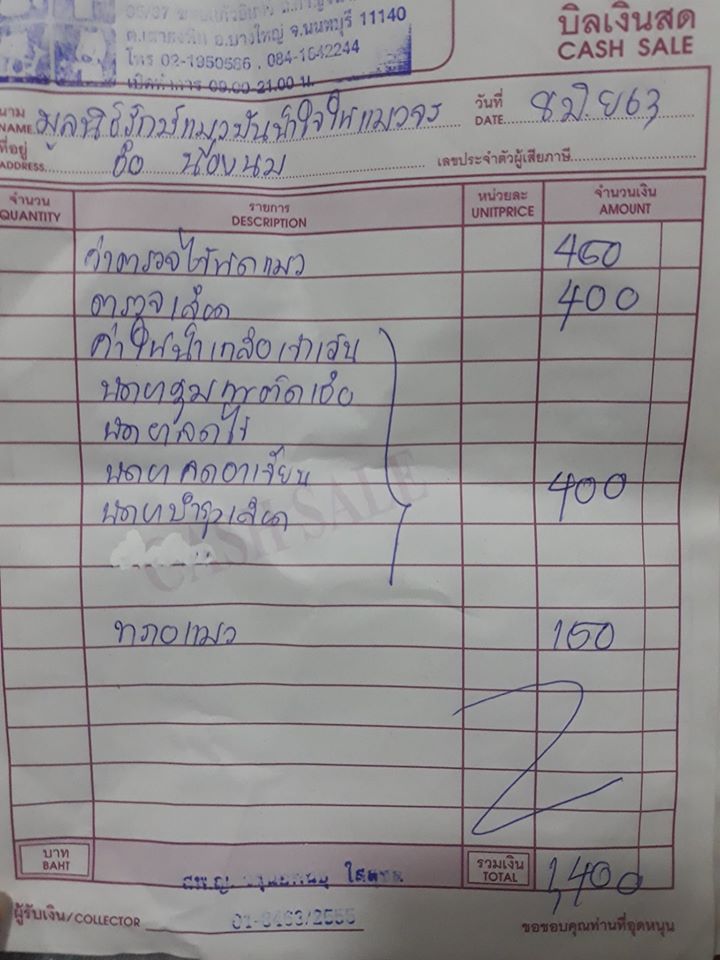 จ.นนทบุรี 11140
อ.บางใหญ่
โทร 02-1950566 , 084-1642244
เปิดทำการ 09.00-21.00 น.
บิลเงินสด
CASH SALE
นาม
NAME มูลนิธิรักษ์แมวปันน้ำใจให้แมวจร
วันที่
DATE 8 มิ.ย 63
ที่อยู่
ADDRESS ชื่อ น้องนม
เลขประจำตัวผู้เสียภาษี
จำนวน QUANTITY รายการ DESCRIPTION หน่วยละ UNITPRICE จำนวนเงิน AMOUNT
ค่าตรวจไข้หัดแมว 450
ตรวจเลือด 400
ค่าให้น้ำเกลือเข้าเส้น
ฉีดยาคุมการติดเชื้อ
ฉีดยาลดไข้
ฉีดยาลดอาเจียน 400
ฉีดยาบำรุงเลือด
CASH SALE
150
บาท
BAHT
รวมเงิน
TOTAL 1,400
ผู้รับเงิน/COLLECTOR 01-8463/2555
ขอขอบคุณท่านที่อุดหนุน